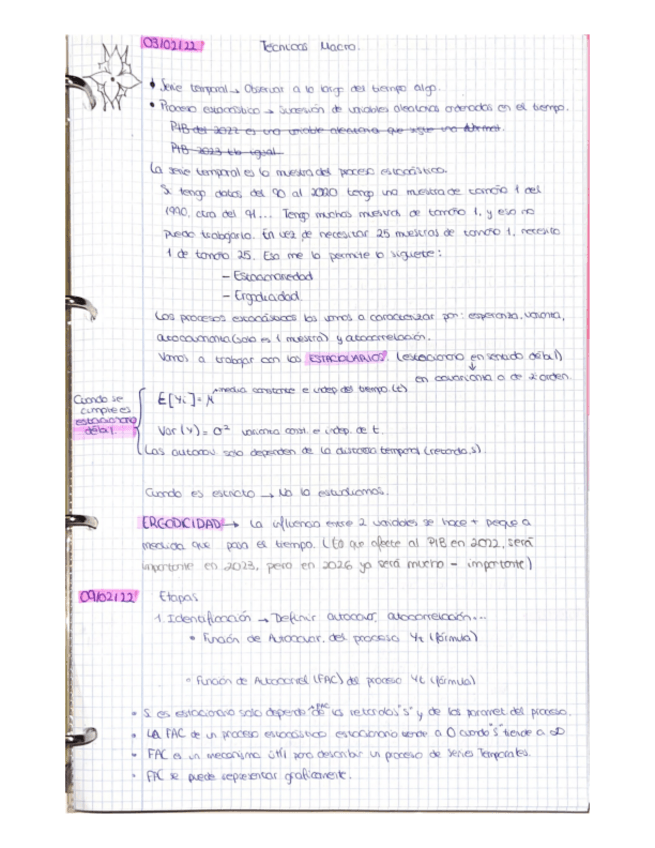 03/02/22 Técnicas Macro.
• Serie temporal → Observar a lo largo del tiempo algo.
• Proceso estocástico → Sucesión de variables aleatorias ordenadas en el tiempo.
PIB del 2022 es una variable aleatoria que sigue una Normal.
PIB 2023 tb igual
La serie temporal es la muestra del proceso estocástico.
Si tengo datos del 90 al 2020 tengo una muestra de tamaño 1 del
1990, otra del 91... Tengo muchas muestras de tamaño 1, y eso no
puedo trabajarlo. En vez de necesitar 25 muestras de tamaño 1, necesito
1 de tamaño 25. Eso me lo permite lo siguiente:
- Estacionariedad
- Ergodicidad
Los procesos estocásticos los vamos a caracterizar por: esperanza, varianza,
autocovarianza (solo es 1 muestra) y autocorrelación.
Vamos a trabajar con los ESTACIONARIOS. (estacionario en sentido débil)
en covarianza o de 2º orden.
Cuando se cumple es estacionario débil.
E[Yi] = μ media constante e indep del tiempo (t)
Var (Y) = σ² varianza const. e indep. de t.
Las autocov. solo dependen de la distancia temporal (retardo, s)
Cuando es estricto → No lo estudiamos.
ERGODICIDAD → La influencia entre 2 variables se hace + peque a
medida que pasa el tiempo. (Lo que afecte al PIB en 2022, será
importante en 2023, pero en 2026 ya será mucho - importante)
09/02/22 Etapas
1. Identificación → Definir autocov, autocorrelación...
• Función de Autocovar. del proceso Yt (fórmula)
• Función de Autocorrel (FAC) del proceso Yt (fórmula)
• Si es estacionario solo depende FAC de los retardos "s" y de los paramet. del proceso.
• LA FAC de un proceso estocástico estacionario tiende a 0 cuando "s" tiende a ∞
• FAC es un mecanismo útil para describir un proceso de Series Temporales.
• FAC se puede representar gráficamente.